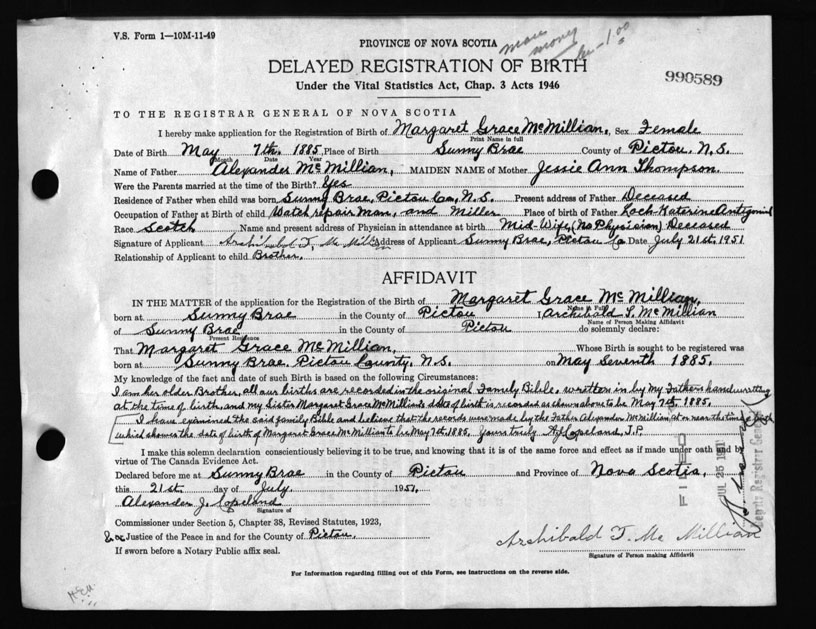 V.S. Form 1—10M-11-49
PROVINCE OF NOVA SCOTIA
more money
1.00
DELAYED REGISTRATION OF BIRTH
990589
Under the Vital Statistics Act, Chap. 3 Acts 1946
TO THE REGISTRAR GENERAL OF NOVA SCOTIA
I hereby make application for the Registration of Birth of Margaret Grace McMillian, Sex Female
Print Name in full
Date of Birth May 7th. 1885, Place of Birth Sunny Brae County of Pictou, N.S.
Month Day Year
Name of Father Alexander McMillian, MAIDEN NAME of Mother Jessie Ann Thompson.
Were the Parents married at the time of the Birth? Yes
Residence of Father when child was born Sunny Brae, Pictou Co, N.S. Present address of Father Deceased
Occupation of Father at Birth of child Watch repair Man, and Miller Place of Birth of Father Loch Katerine Antigonish
Race Scotch Name and present address of Physician in attendance at birth Mid-Wife, (No Physician) Deceased
Signature of Applicant Archibald T. McMillian Address of Applicant Sunny Brae, Pictou Co Date July 21st. 1951
Relationship of Applicant to child Brother.
AFFIDAVIT
IN THE MATTER of the application for the Registration of the Birth of Margaret Grace McMillian,
Name in Full
born at Sunny Brae in the County of Pictou I, Archibald T. McMillian
Name of Person Making Affidavit
of Sunny Brae in the County of Pictou do solemnly declare:
Present Residence
That Margaret Grace McMillian, Whose Birth is sought to be registered was
born at Sunny Brae. Pictou County, N.S. on May Seventh 1885.
My knowledge of the fact and date of such Birth is based on the following Circumstances:
I am her older Brother, all our births are recorded in the original Family Bible, written in by my Fathers handwriting
at the time of birth, and my Sister Margaret Grace McMillian's date of birth is recorded as shown above to be May 7th. 1885.
I have examined the said family Bible and believe that the records were made by the Father Alexander McMillian at or near the time of birth
which shows the date of birth of Margaret Grace McMillian to be May 7th 1885. Yours truly AJ Copeland, J.P.
I make this solemn declaration conscientiously believing it to be true, and knowing that it is of the same force and effect as if made under oath and by
virtue of The Canada Evidence Act.
Declared before me at Sunny Brae in the County of Pictou and Province of Nova Scotia,
this 21st. day of July 1951,
Alexander J. Copeland
Signature of
Commissioner under Section 5, Chapter 38, Revised Statutes, 1923,
& or Justice of the Peace in and for the County of Pictou.
If sworn before a Notary Public affix seal.
Archibald T. Mc Millian
Signature of Person making Affidavit
FILED
JUL 25 1951
Deputy Registrar General
For Information regarding filling out of this Form, see instructions on the reverse side.